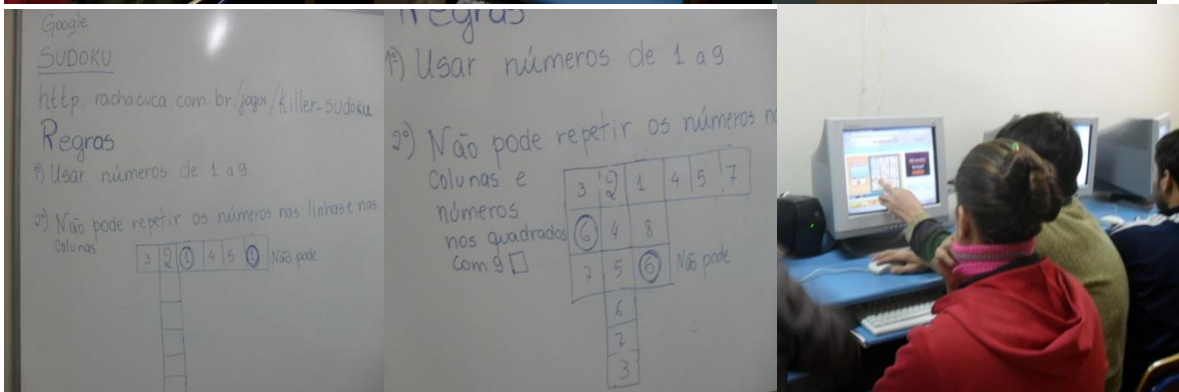 Google
SUDOKU
http: rachacuca.com.br/jogos/killer-sudoku
Regras
1º) Usar números de 1 a 9
2º) Não pode repetir os números nas linhas e nas
Colunas
3 2 1 4 5 1 Não pode
Regras
1º) Usar números de 1 a 9
2º) Não pode repetir os números n
Colunas e
números
nos quadrados
com 9
3 2 1 4 5 7
6 4 8
7 5 6 Não pode
6
7
3